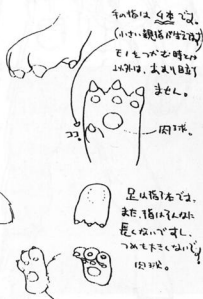 手の指は4本です。
(小さい親指が生えてます
モノをつかむ時とか
以外は、あまり目立ち
ません。
ココ。
肉球。
足の指は3本です。
また、指はそんなに
長くないですし、
つめも大きくないです。
肉球。